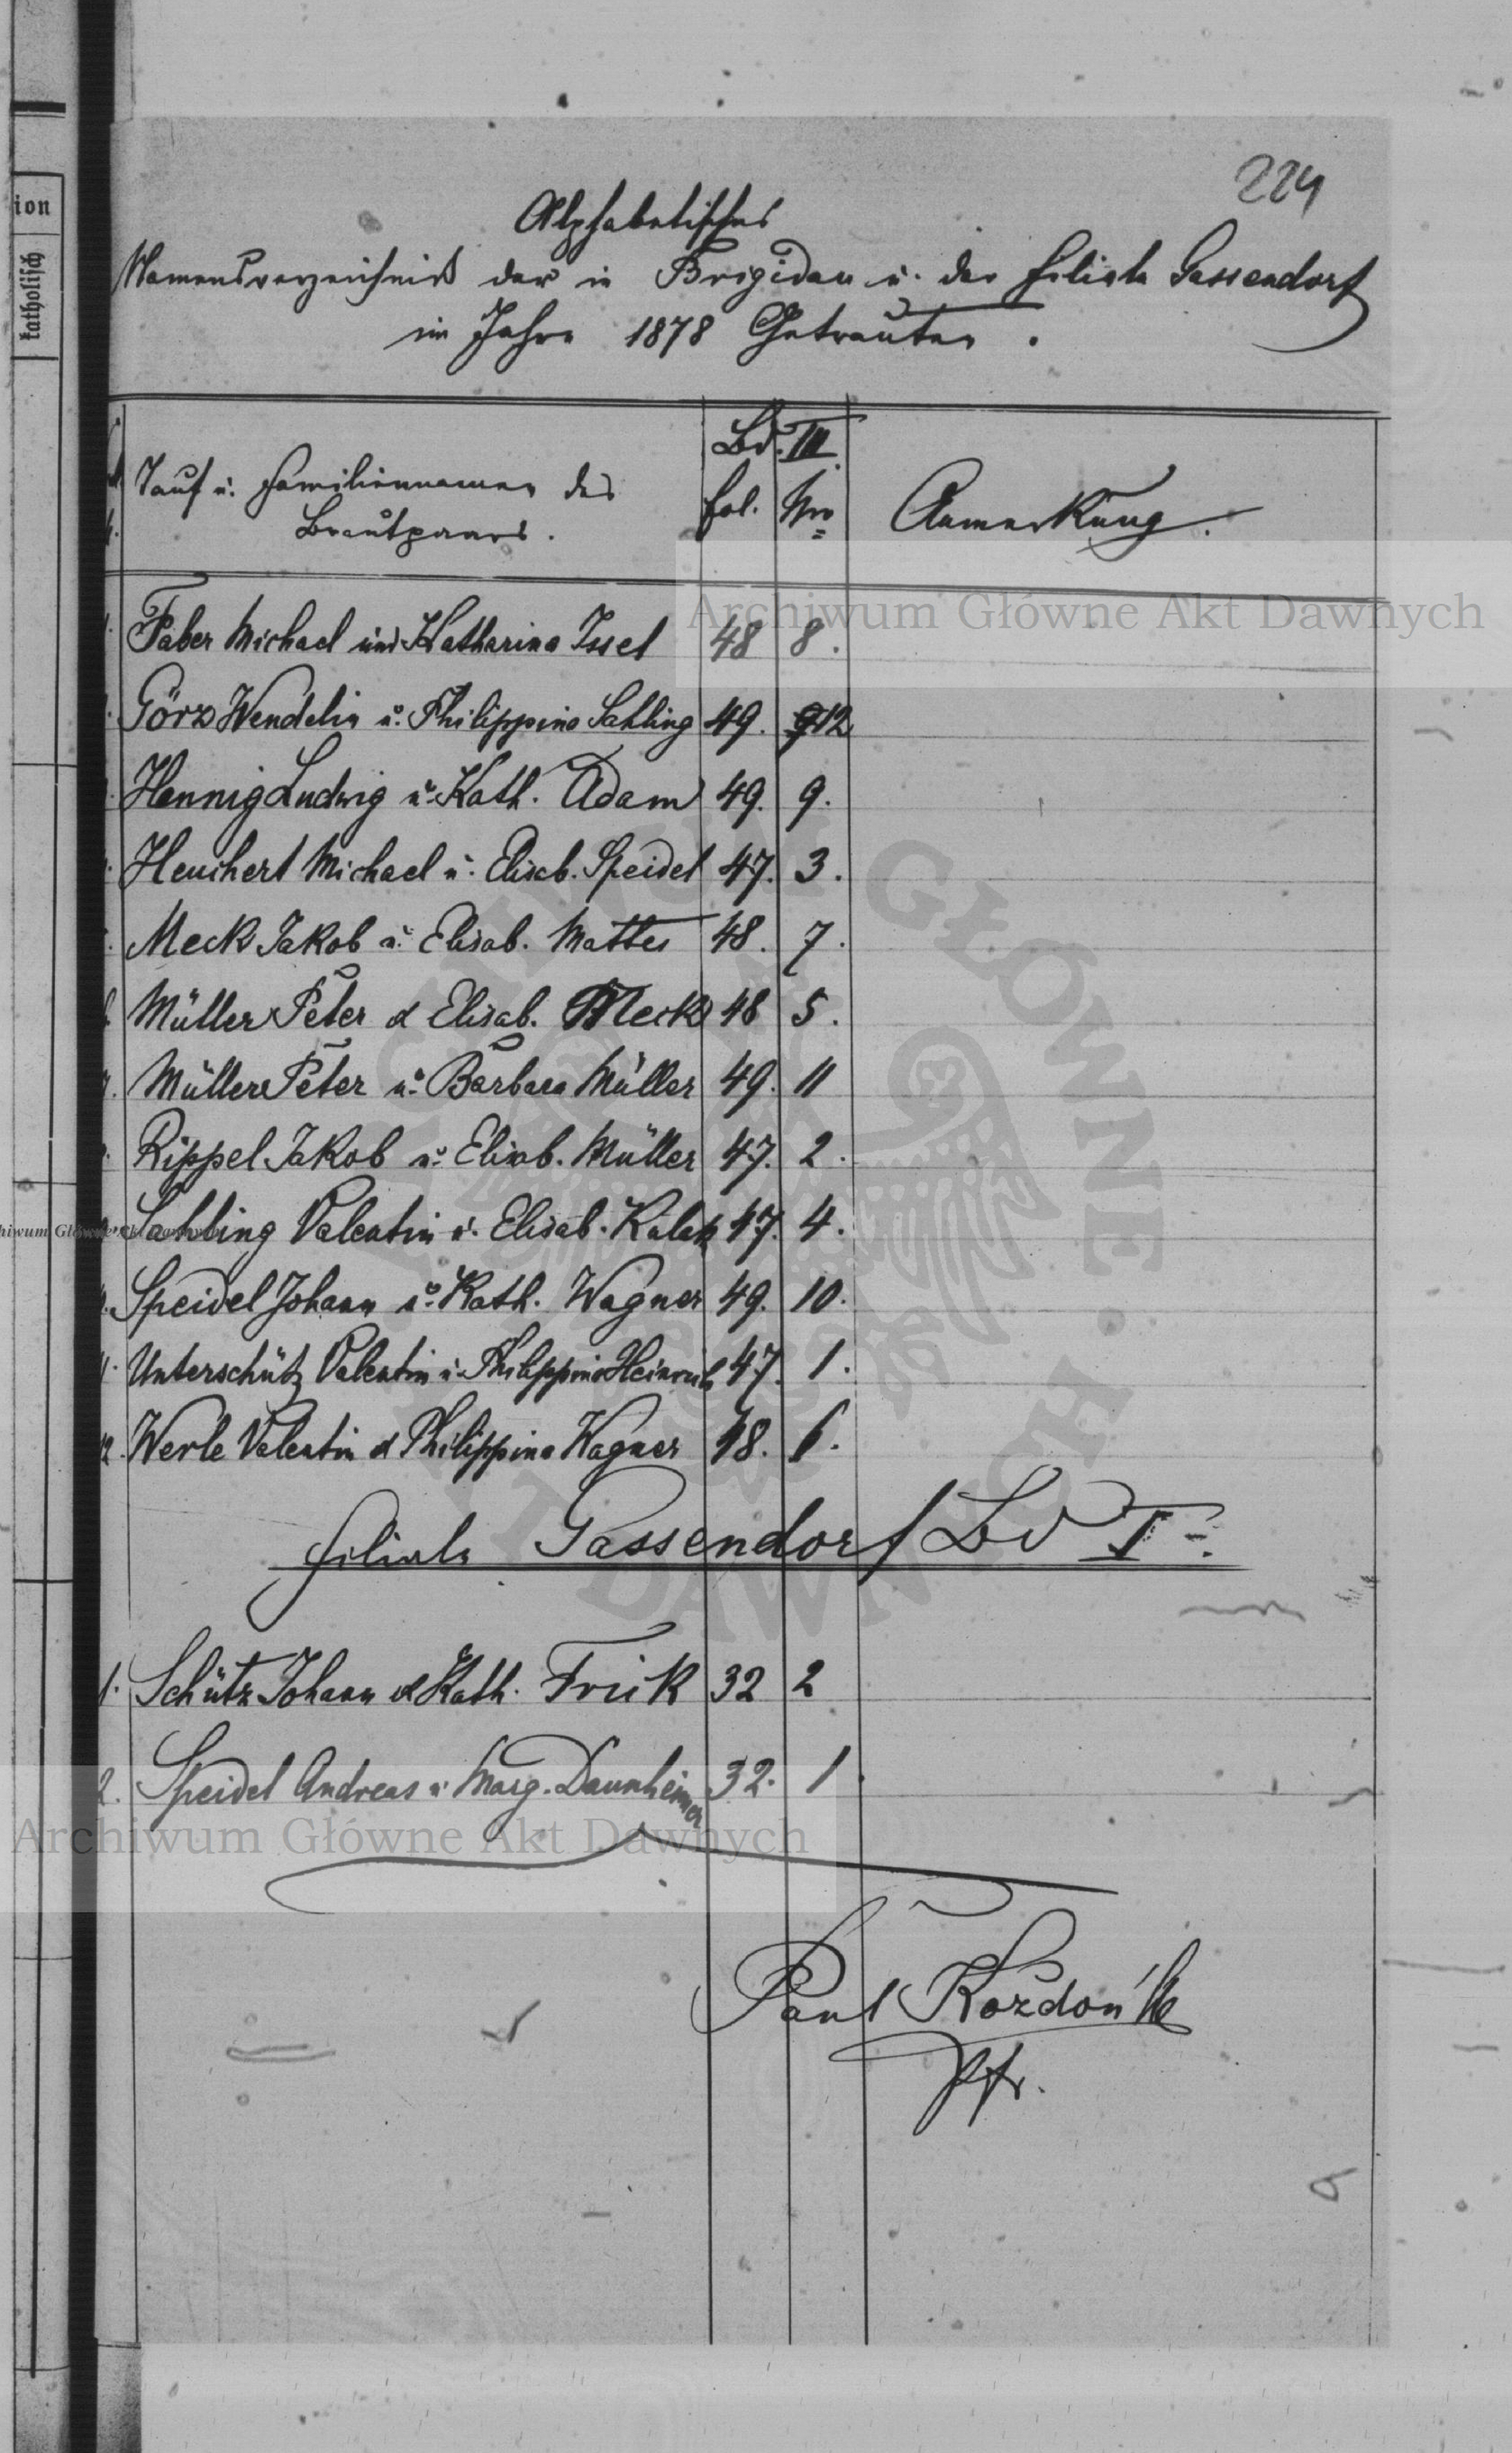 224
Alphabetisches
Namensverzeichniß der in Brigidau u. der Filiale Gassendorf
im Jahre 1878 Getrauten.
ion
katholisch
Bd. III.
Tauf u. Familiennamen des
Brautpaars.
fol. Nro
Anmerkung.
Faber Michael und Katharina Issel 48 8.
Görz Wendelin u. Philippina Sahling 49. 12
Hennig Ludwig u. Kath. Adam 49. 9.
Heuchert Michael u. Elisab. Speidel 47. 3.
Meck Jakob u. Elisab. Mattes 48. 7.
6. Müller Peter & Elisab. Meck 48 5.
7. Müller Peter u. Barbara Müller 49. 11
Rippel Jakob u. Elisab. Müller 47. 2.
Sahling Valentin u. Elisab. 47. 4.
Speidel Johann u. Kath. Wagner 49. 10.
Unterschütz Valentin u. Philippina Heinrich 47. 1.
12. Werle Valentin & Philippina Wagner 48. 6.
Filiale Gassendorf Bd I.
1. Schütz Johann & Kath. Frick 32 2
2. Speidel Andreas u. Marg. Daunheimer 32. 1.
Paul Kozdon
Pfr.
Archiwum Główne Akt Dawnych
Archiwum Główne Akt Dawnych